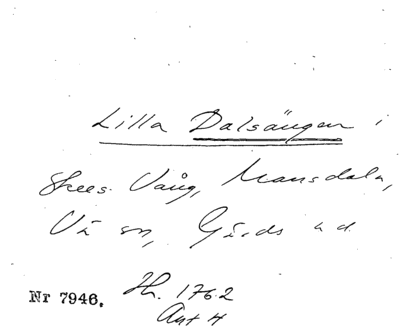 Lilla Dalsängen i
Skees Vång, Mansdala,
Vä sn, Gärds hd.
Nr 7946. Hh. 1762
Akt 4